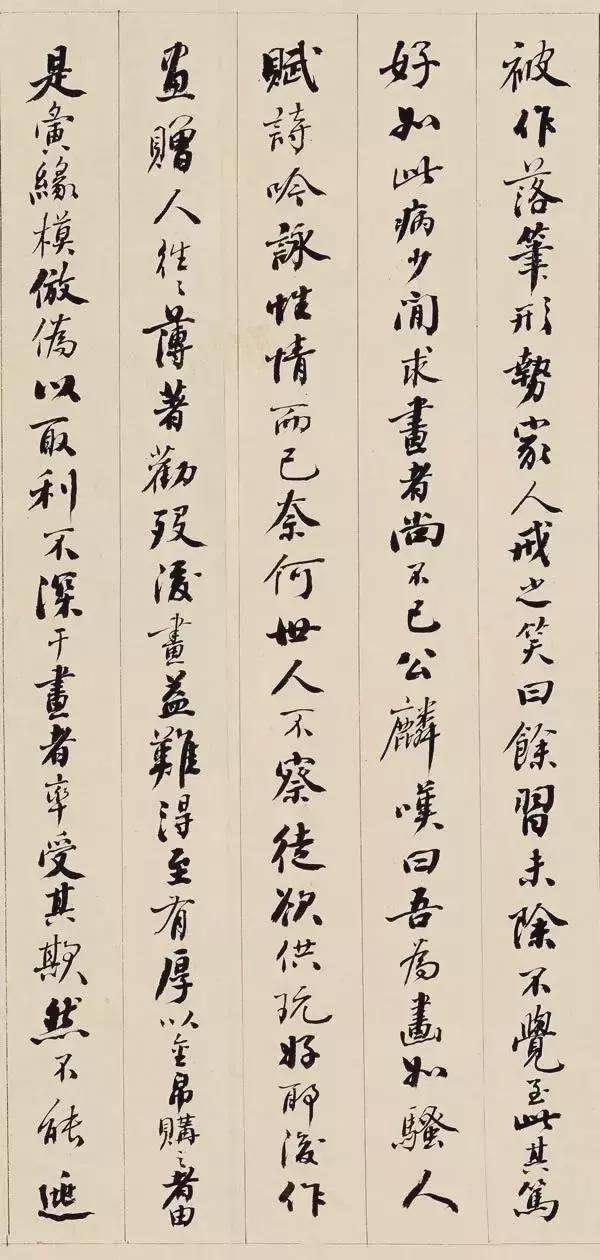 被作落筆形勢家人戒之笑曰餘習未除不覺至此其篤
好如此病少閒求畫者尚不已公麟嘆曰吾為畫如騷人
賦詩吟詠性情而已奈何世人不察徒欲供玩好耶後作
畫贈人往〻薄著勸歿後畫益難得至有厚以金帛購〻者由
是夤緣模倣偽以取利不深于畫者率受其欺然不能逃